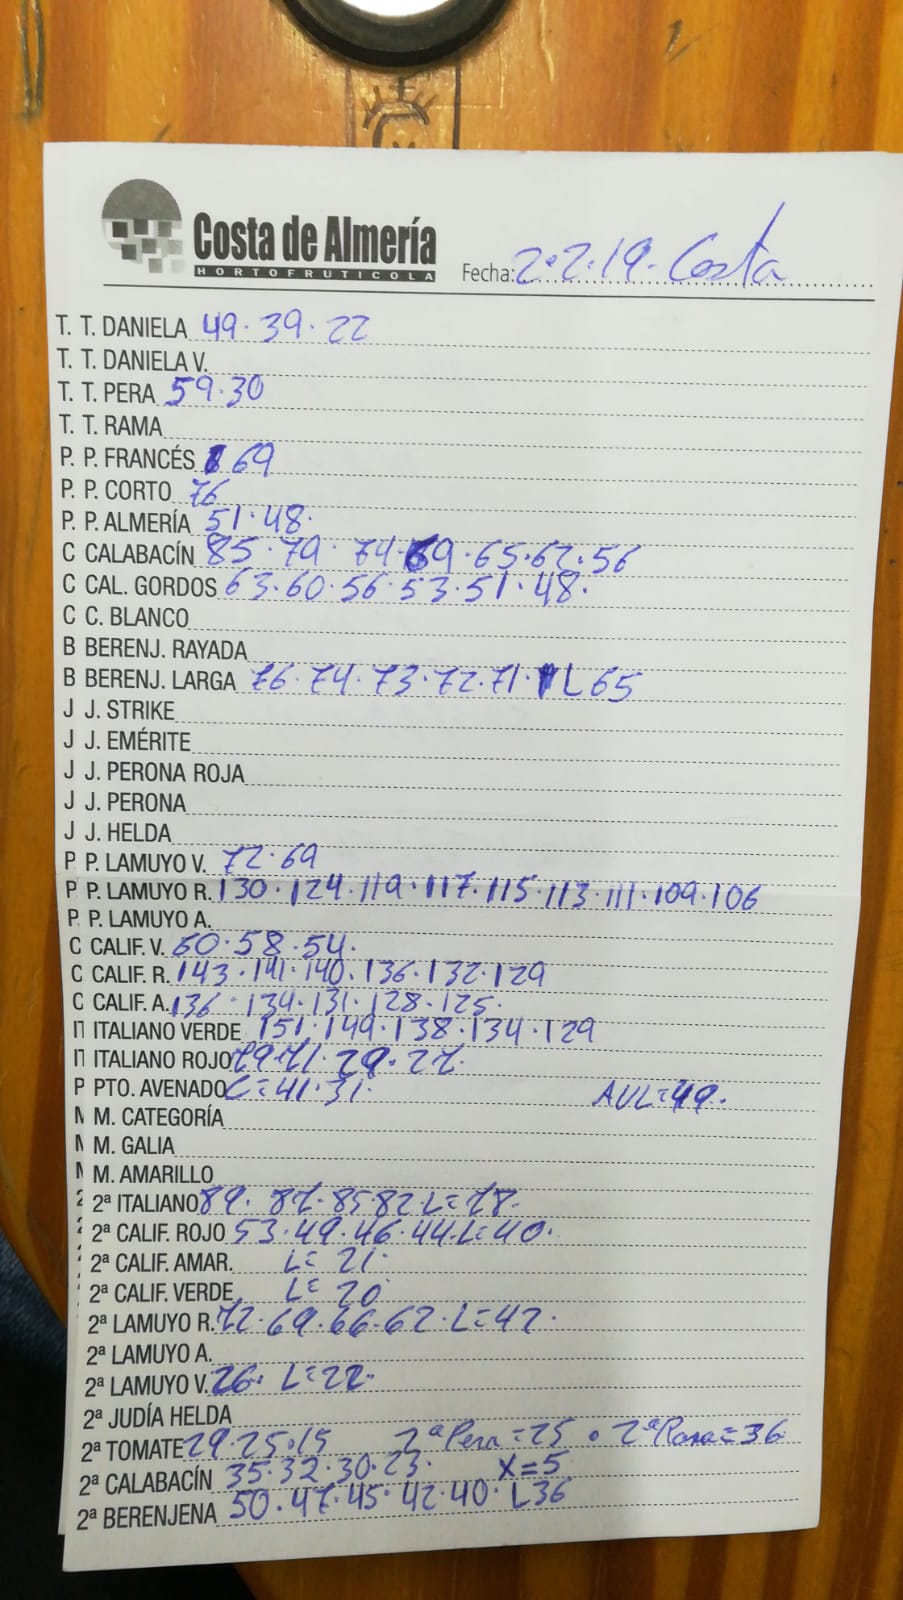 Costa de Almería
HORTOFRUTICOLA
Fecha: 2·2·19· Costa
T. T. DANIELA 49·39·22
T. T. DANIELA V.
T. T. PERA 59·30
T. T. RAMA
P. P. FRANCÉS 69
P. P. CORTO 76
P. P. ALMERÍA 51·48·
C CALABACÍN 85·79·74·69·65·62·56
C CAL. GORDOS 63·60·56·53·51·48·
C C. BLANCO
B BERENJ. RAYADA
B BERENJ. LARGA 76·74·73·72·71· L 65
J J. STRIKE
J J. EMÉRITE
J J. PERONA ROJA
J J. PERONA
J J. HELDA
P P. LAMUYO V. 72·69
P P. LAMUYO R. 130·124·119·117·115·113·111·109·106
P P. LAMUYO A.
C CALIF. V. 60·58·54·
C CALIF. R. 143·141·140·136·132·129
C CALIF. A. 136·134·131·128·125·
IT ITALIANO VERDE 151·149·138·134·129
IT ITALIANO ROJO 29·27·
P PTO. AVENADO C=41·31· AUL=49·
M M. CATEGORÍA
M. GALIA
M. AMARILLO
2ª ITALIANO 89·87·85 82·L=78·
2ª CALIF. ROJO 53·49·46·44·L=40·
2ª CALIF. AMAR. L=21
2ª CALIF. VERDE L=20
2ª LAMUYO R. 72·69·66·62·L=42·
2ª LAMUYO A.
2ª LAMUYO V. 26· L=22·
2ª JUDÍA HELDA
2ª TOMATE 29·25·15 2ª Pera=25 · 2ª Rama=36
2ª CALABACÍN 35·32·30·23· X=5
2ª BERENJENA 50·47·45·42·40· L36